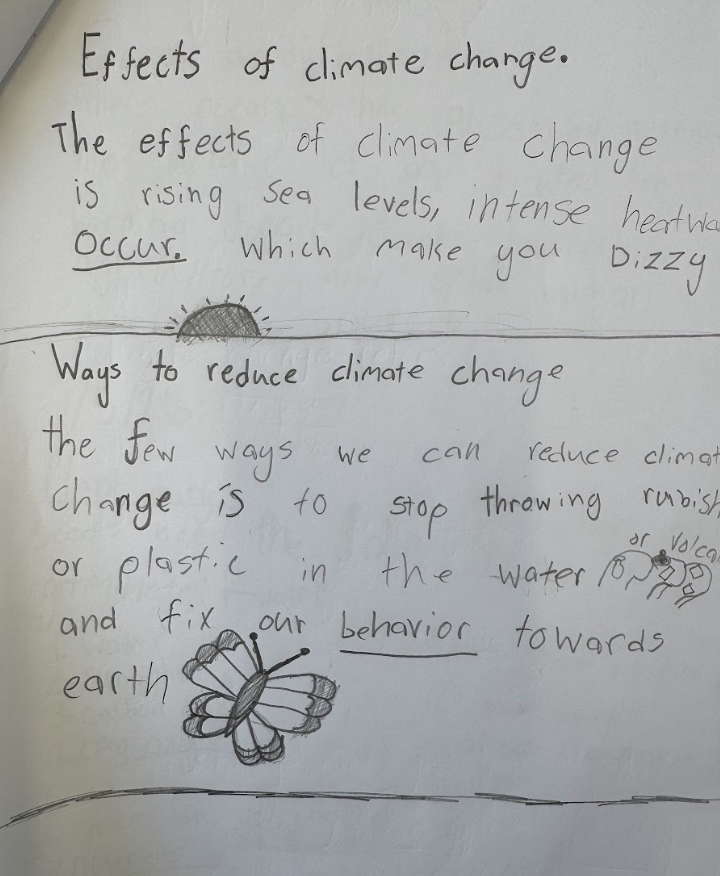 Effects of climate change.
The effects of climate change
is rising sea levels, intense heatwa
Occur. Which make you Dizzy
Ways to reduce climate change
the few ways we can reduce climat
change is to stop throwing rubish
or plastic in the water or volca
and fix our behavior towards
earth